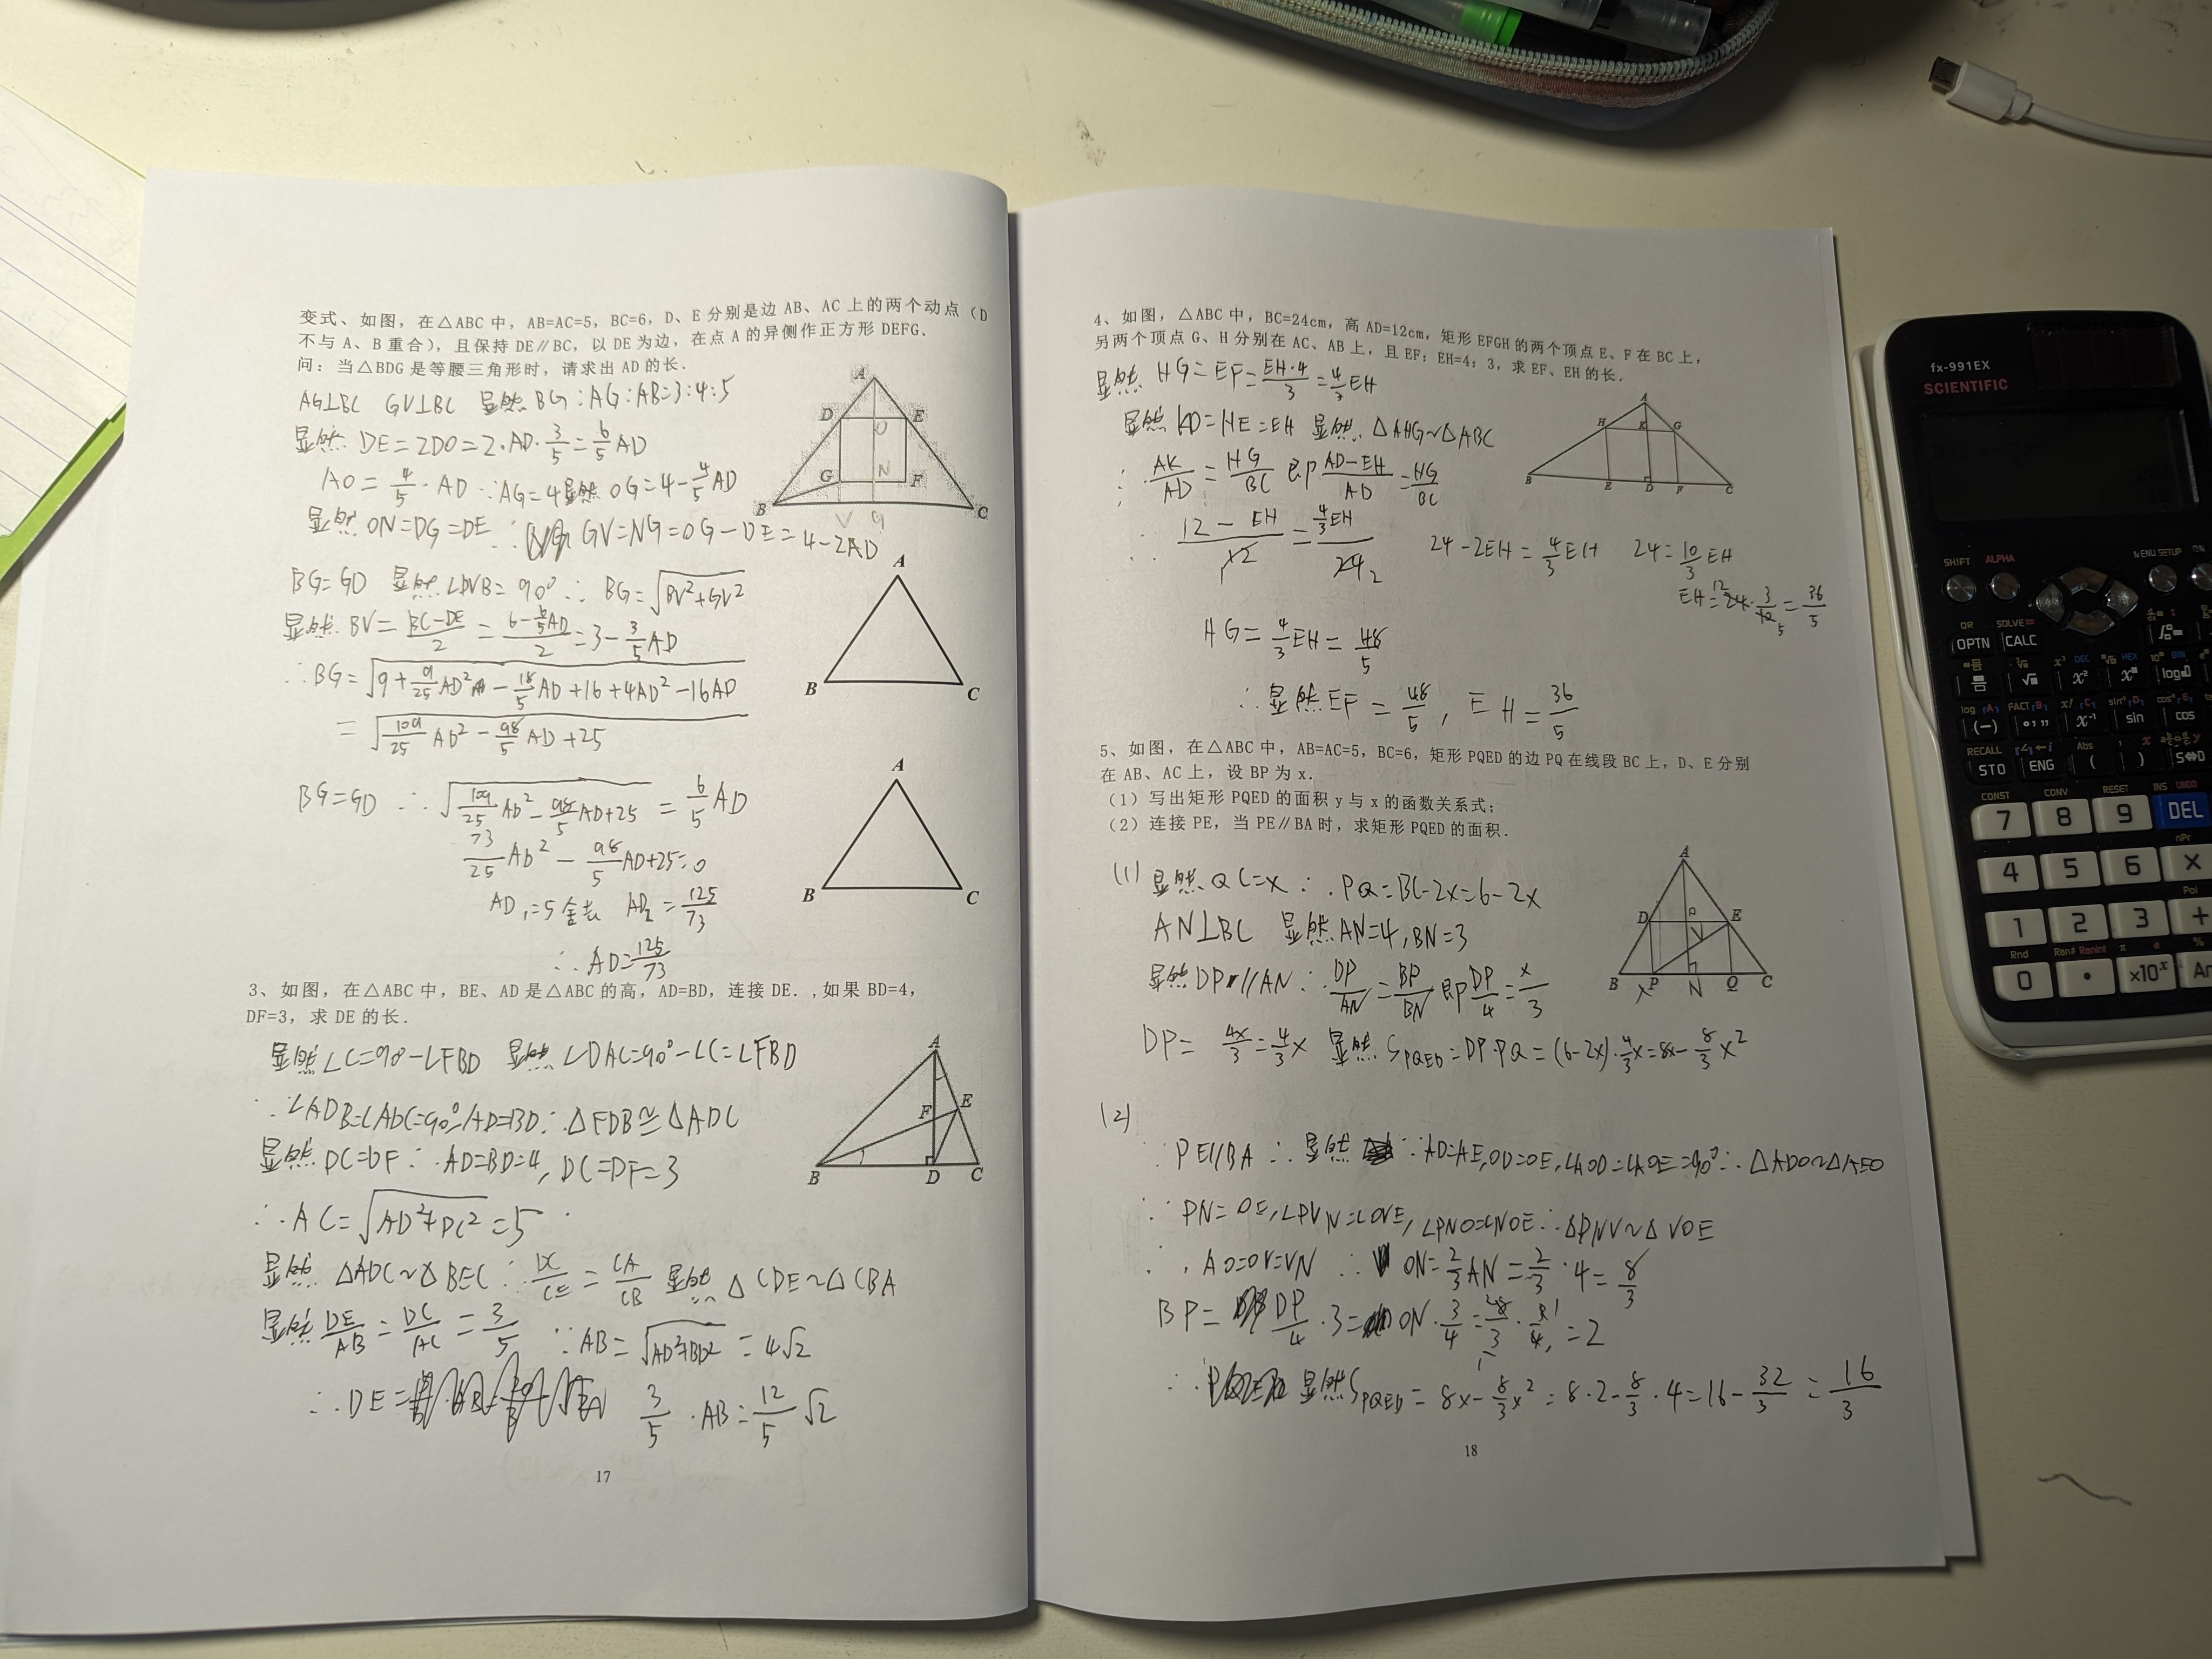 变式、如图，在△ABC 中，AB=AC=5，BC=6，D、E 分别是边 AB、AC 上的两个动点（D
不与 A、B 重合），且保持 DE∥BC，以 DE 为边，在点 A 的异侧作正方形 DEFG．
问：当△BDG 是等腰三角形时，请求出 AD 的长．
AG⊥BC GV⊥BC 显然 BG:AG:AB=3:4:5
显然 DE=2DO=2·AD·3/5=6/5AD
AO=4/5·AD ∵AG=4 显然 OG=4-4/5AD
显然 ON=DG=DE ∴ GV=NG=OG-DE=4-2AD
BG=GD 显然∠DVB=90° ∴ BG=√(BV²+GV²)
显然 BV=(BC-DE)/2=(6-6/5AD)/2=3-3/5AD
∴BG=√(9+9/25AD²-18/5AD+16+4AD²-16AD)
=√(109/25AD²-98/5AD+25)
BG=GD ∴√(109/25AD²-98/5AD+25)=6/5AD
73/25AD²-98/5AD+25=0
AD₁=5舍去 AD₂=125/73
∴AD=125/73
A
D
O
E
G
N
F
B
V
G
C
A
B
C
A
B
C
3、如图，在△ABC 中，BE、AD 是△ABC 的高，AD=BD，连接 DE．,如果 BD=4，
DF=3，求 DE 的长．
显然∠C=90°-∠FBD 显然∠DAC=90°-∠C=∠FBD
∵∠ADB=∠ADC=90°,AD=BD∴△FDB≌△ADC
显然 DC=DF ∵AD=BD=4, DC=DF=3
∴AC=√(AD²+DC²)=5
显然 △ADC∽△BEC ∴DC/CE=CA/CB 显然 ∴△CDE∽△CBA
显然 DE/AB=DC/AC=3/5 ∵AB=√(AD²+BD²)=4√2
∴DE= 3/5·AB=12/5√2
A
F
E
B
D
C
17
4、如图，△ABC 中，BC=24cm，高 AD=12cm，矩形 EFGH 的两个顶点 E、F 在 BC 上，
另两个顶点 G、H 分别在 AC、AB 上，且 EF：EH=4：3，求 EF、EH 的长．
显然 HG=EF=EH·4/3=4/3EH
显然 KD=HE=EH 显然 △AHG∽△ABC
∴AK/AD=HG/BC 即(AD-EH)/AD=HG/BC
∴(12-EH)/12=(4/3EH)/24 2 24-2EH=4/3EH 24=10/3EH
EH=24·3/10=36/5
HG=4/3EH=48/5
∴显然EF=48/5, EH=36/5
A
H
K
G
B
E
D
F
C
5、如图，在△ABC 中，AB=AC=5，BC=6，矩形 PQED 的边 PQ 在线段 BC 上，D、E 分别
在 AB、AC 上，设 BP 为 x．
（1）写出矩形 PQED 的面积 y 与 x 的函数关系式；
（2）连接 PE，当 PE∥BA 时，求矩形 PQED 的面积．
(1) 显然 QC=x ∴PQ=BC-2x=6-2x
AN⊥BC 显然AN=4,BN=3
显然DP//AN ∴DP/AN=BP/BN 即DP/4=x/3
DP=4x/3=4/3x 显然 S_PQED=DP·PQ=(6-2x)·4/3x=8x-8/3x²
(2)
∵PE//BA ∴显然 ∵AD=AE,OD=OE,∠AOD=∠AOE=90°∴△ADO∽△AEO
∵PN=OE,∠PVN=∠OVE,∠PNO=∠NOE∴△PNV∽△VOE
∴AO=OV=VN ∴ON=2/3AN=2/3·4=8/3
BP=DP/4·3=ON·3/4=8/3·3/4=2
∴显然S_PQED=8x-8/3x²=8·2-8/3·4=16-32/3=16/3
A
D
E
V
B
x
P
N
Q
C
18
fx-991EX
SCIENTIFIC
SHIFT
ALPHA
MENU SETUP
ON
QR
SOLVE =
OPTN
CALC
x²
log
(-)
x⁻¹
sin
cos
RECALL
Abs
STO
ENG
(
)
S⇔D
CONST
CONV
RESET
INS UNDO
7
8
9
DEL
nPr
4
5
6
×
Pol
1
2
3
+
Rnd
Ran# RanInt
π
e
%
0
•
×10ˣ
An